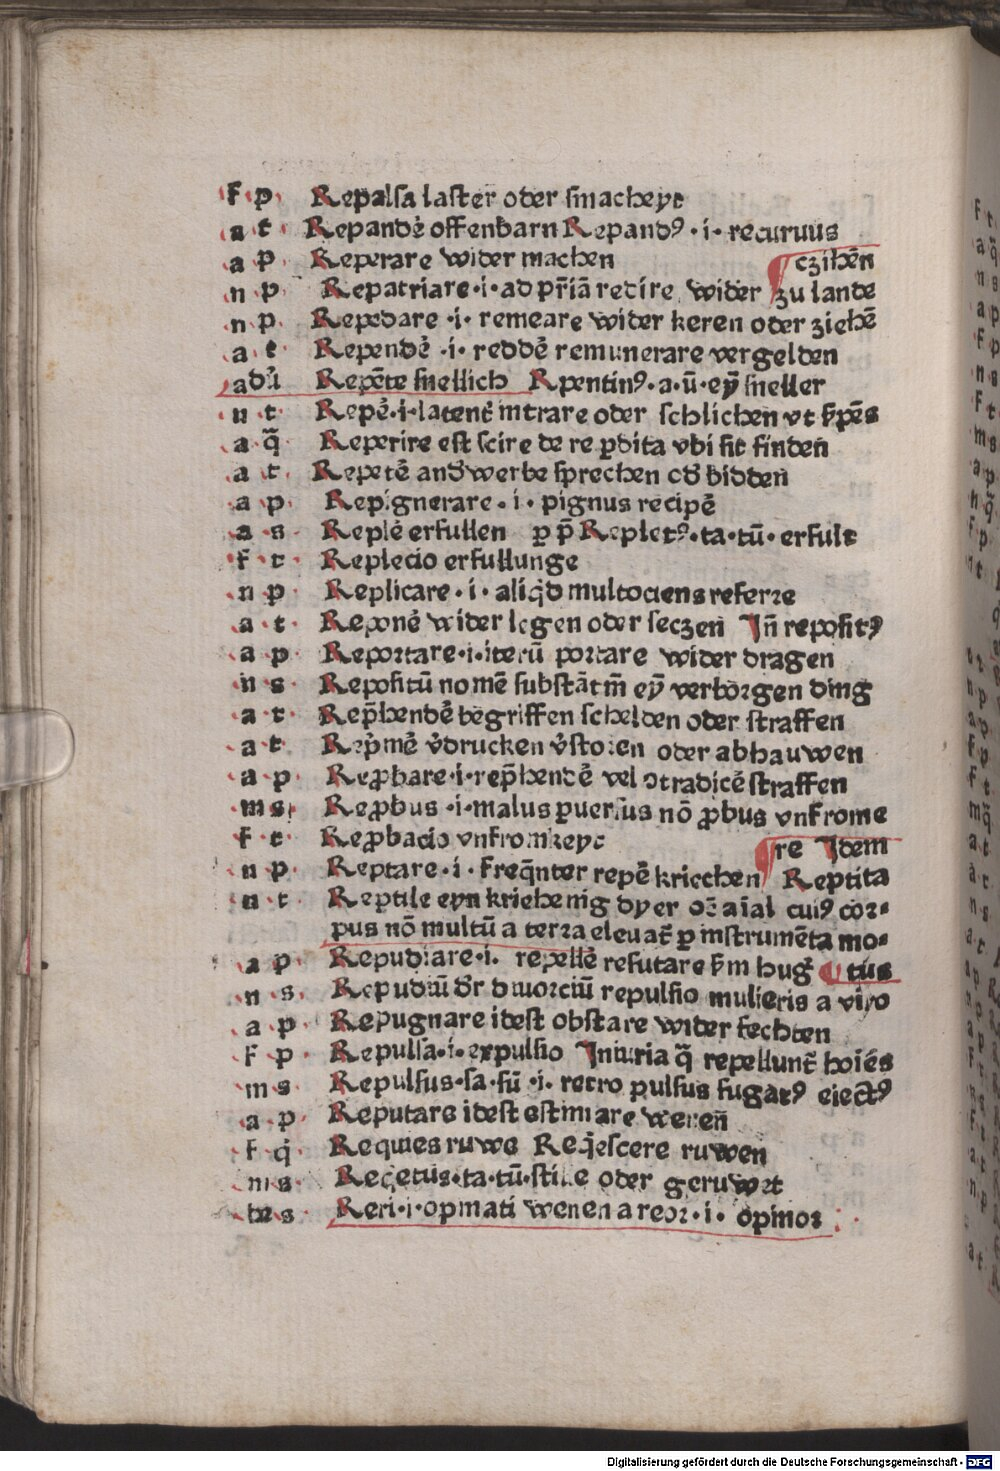 f p Repalsa laster oder smacheyt
a t Repandẽ offenbarn Repandꝰ ·i· recuruus
a p Reperare wider machen czihẽn
n p Repatriare ·i· ad pr̃iã redire wider zu lande
n p Repedare ·i· remeare wider keren oder ziehẽ
a t Rependẽ ·i· reddẽ remunerare vergelden
adũ Repẽte snellich Rpentinꝰ·a·ũ·eỹ sneller
n t Repẽ·i·latent̃ intrare oder schlichen vt s̃pẽs
a q̃ Reperire est scire de re ꝑdita vbi sit finden̄
a t Repetẽ and̕werbe sprechen od̕ bidden̄
a p Repignerare ·i· pignus recipẽ
a s Replẽ erfullen ꝑ p̄ Repletꝰ·ta·tũ·erfult
f t Replecio erfullunge
n p Replicare ·i· aliq̇d multociens referre
a t Reponẽ wider legen oder seczen̄ Jn̄ repositꝰ
a p Reportare·i·iterũ portare wider dragen
n s Repositũ nomẽ substãtm̃ eỹ verborgen ding
a t Rep̄hendẽ begriffen schelden oder straffen
a t Rep̕mẽ v̕drucken v̕stozen oder abhauwen
a p Reꝓbare·i·rep̄hendẽ vel ↄtradicẽ straffen
m s Reꝓbus ·i·malus ꝑuersus nō ꝓbus vnfrome
f t Reꝓbacio vnfromkeyt re Jdem
n p Reptare·i·freq̃nter repẽ kriechen Reptita
n t Reptile eyn kriehenig dyer oẽ aĩal cuiꝰ cor-
pus nō multũ a terra eleuat̃ ꝑ instrumẽta mo-
a p Repudiare·i· repellẽ refutare s̃m hug̕ tus
n s Repudiũ dr̃ diuorciũ repulsio mulieris a viro
a p Repugnare idest obstare wider fechten
f p Repulsa·i·expulsio Jniuria q̃ repellunt̃ hoiẽs
m s Repulsus·sa·sũ ·i· retro pulsus fugatꝰ eiectꝰ
a p Reputare idest estimare wenen̄
f q̇ Requies ruwe Req̇escere ruwen
m s Reqetus·ta·tũ·stille oder geruwet
s Reri·i·opinati wenen a reor·i· opinor